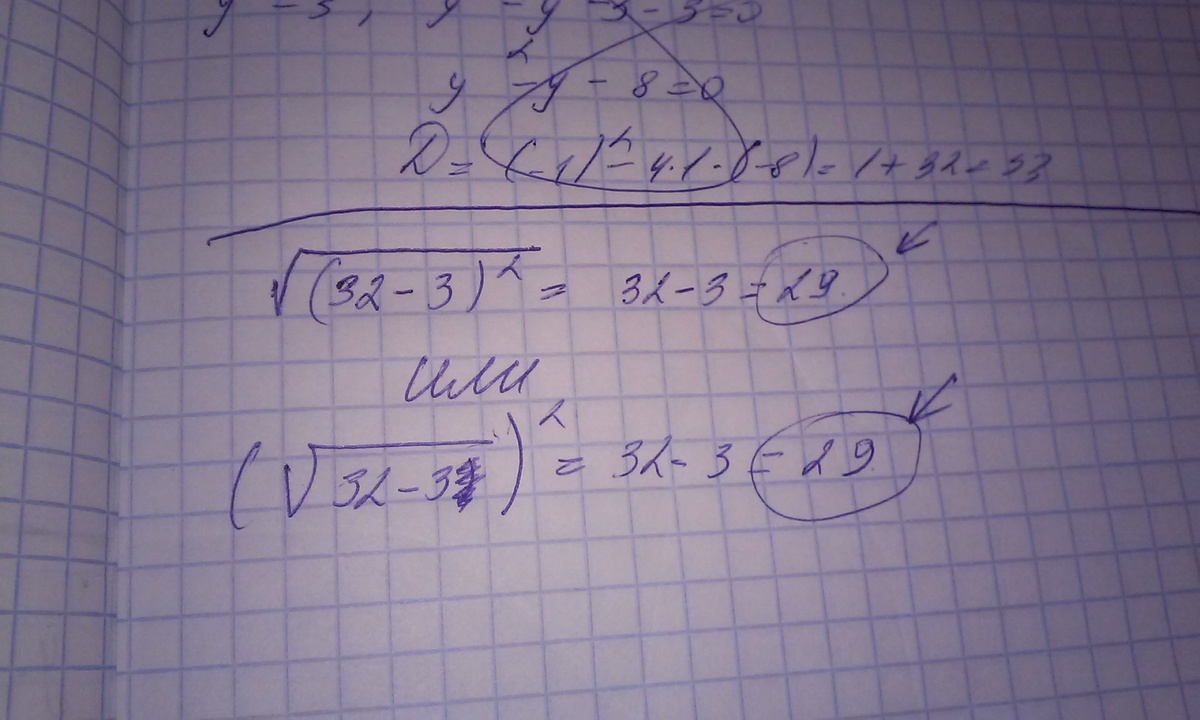 y² - y - 8 = 0
D = (-1)² - 4·1·(-8) = 1 + 32 = 33
√(32-3)² = 32-3 = 29.
или
(√32-3)² = 32-3 = 29.